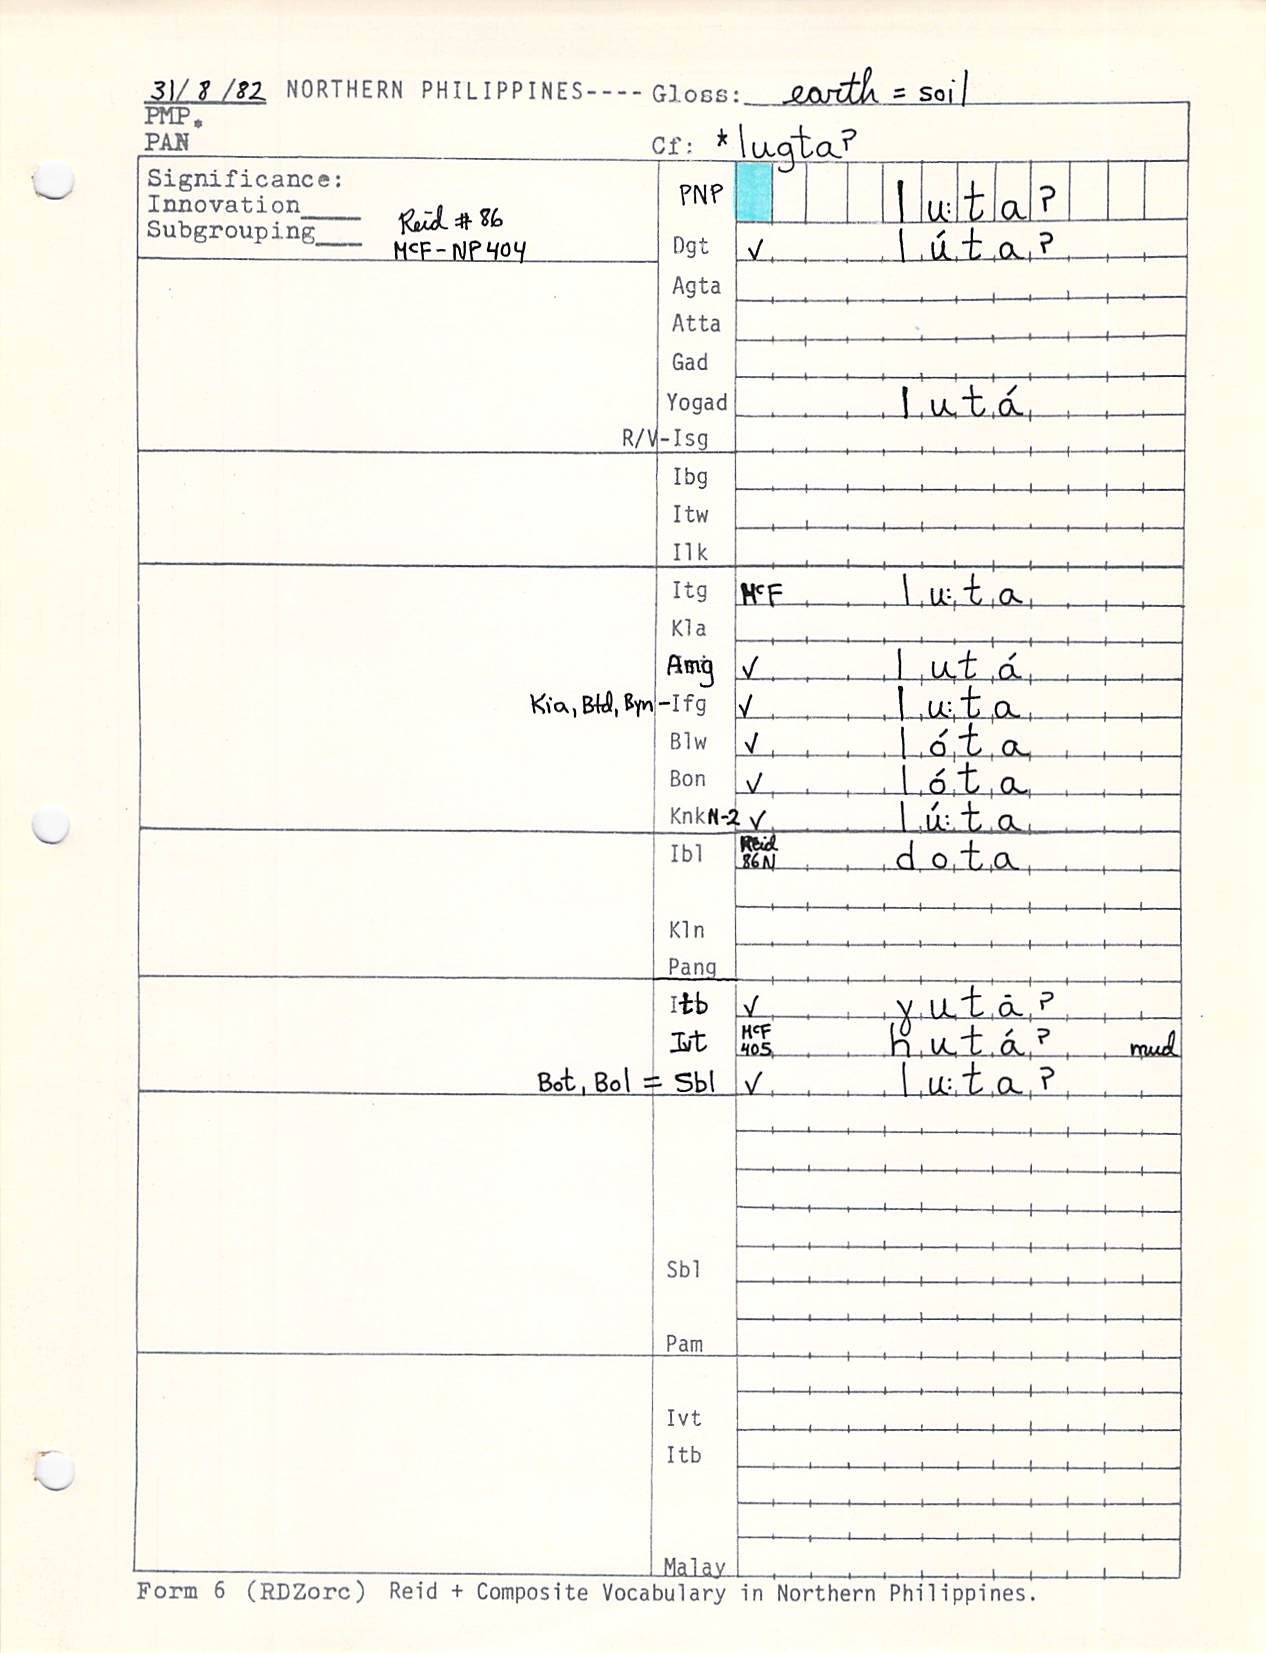 31/8/82 NORTHERN PHILIPPINES---- Gloss: earth = soil
PMP.
PAN Cf: *lugtaʔ
Significance:
Innovation____
Subgrouping___
Reid # 86
McF-NP 404
PNP lu:taʔ
Dgt ✓ lútaʔ
Agta
Atta
Gad
Yogad lutá
R/V-Isg
Ibg
Itw
Ilk
Itg McF lu:ta
Kla
Amg ✓ lutá
Kia, Btd, Byn-Ifg ✓ lu:ta
Blw ✓ lóta
Bon ✓ lóta
Knk N-2 ✓ lú:ta
Ibl Reid 86N dota
Kln
Pang
Itb ✓ ɣutāʔ
Ivt McF 405 hutáʔ mud
Bot, Bol = Sbl ✓ lu:taʔ
Sbl
Pam
Ivt
Itb
Malay
Form 6 (RDZorc) Reid + Composite Vocabulary in Northern Philippines.